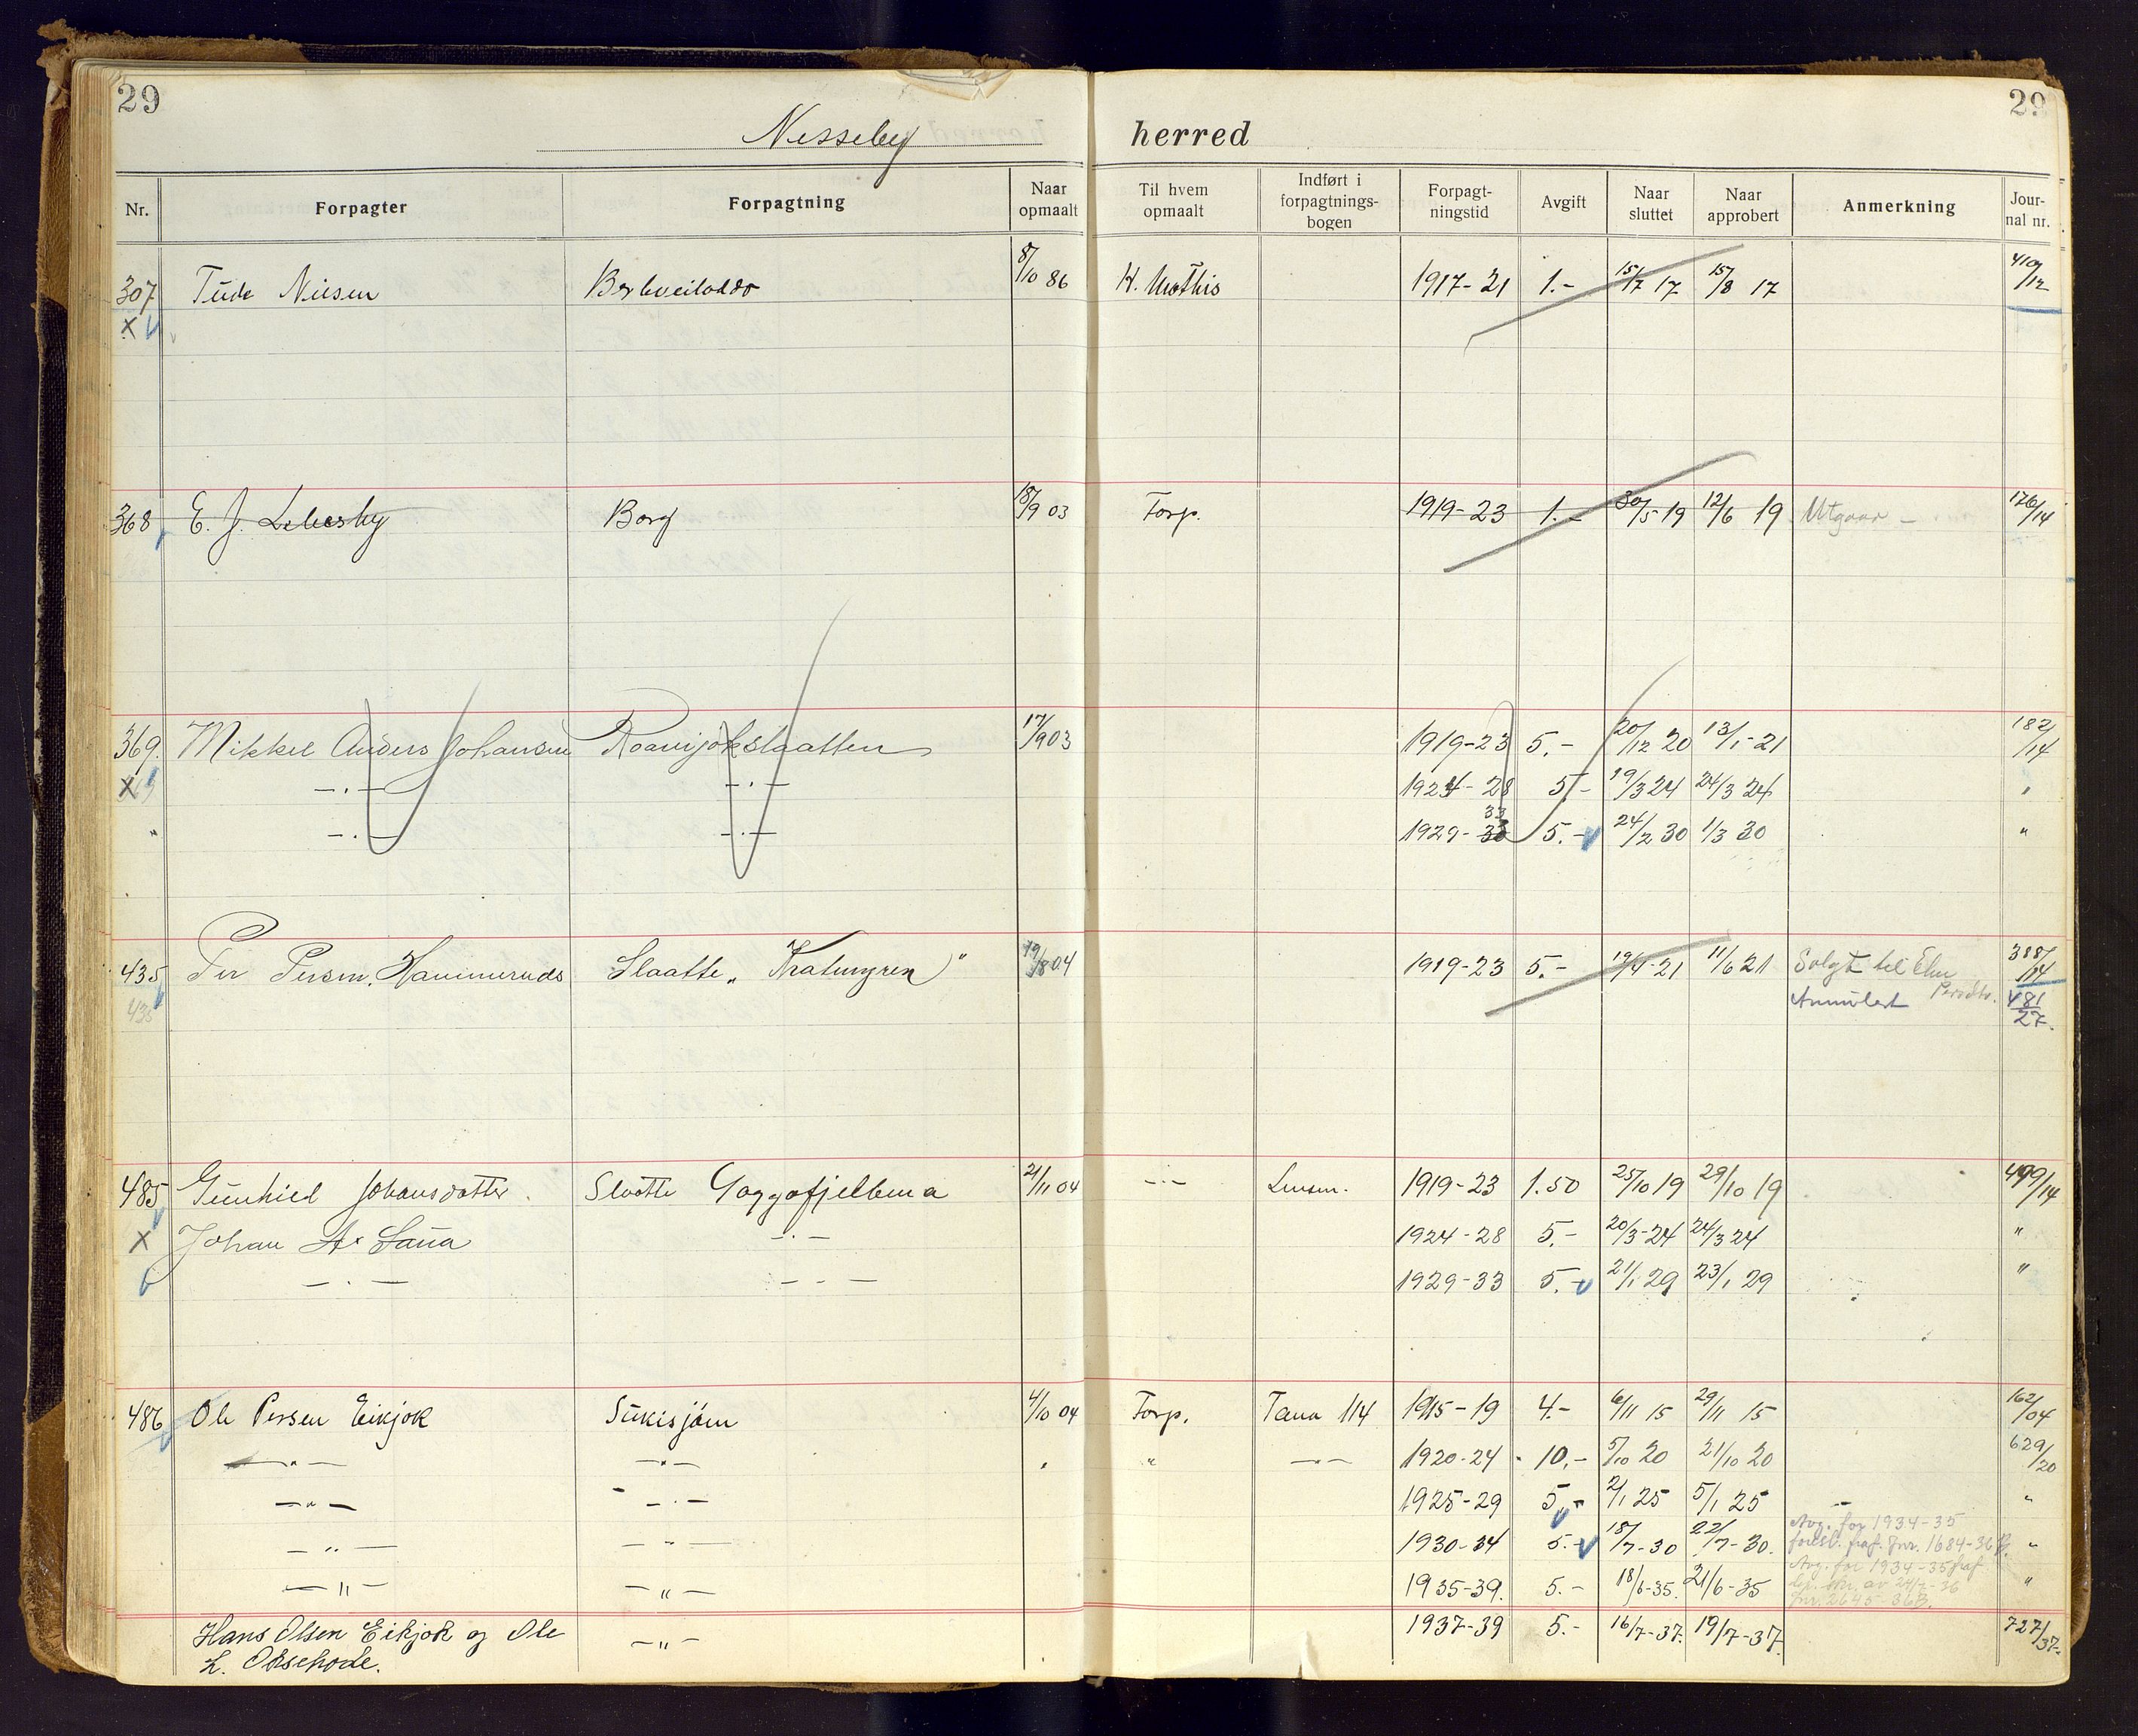 29 29
Nesseby herred
Nr. Forpagter Forpagtning Naar opmaalt Til hvem opmaalt Indført i forpagtnings-bogen Forpagt-ningstid Avgift Naar sluttet Naar approbert Anmerkning Jour-nal nr.
307 8/10 86 H. Mathis 1917-21 1.- 15/7 17 15/8 17 410/12
x
368 E. J. Lebesby Borg 18/9 03 Forp. 1919-23 1.- 30/5 19 12/6 19 Utgaar - 176/14
369. Mikkel Anders Johansen Roavijokslaatten 17/9 03 1919-23 5.- 20/12 20 13/1-21 182/14
x -.- -.- 1924-28 5.- 19/3 24 24/3 24 "
" -.- -.- 1929-33 5.- 24/2 30 1/3 30 "
435 Per Persen, Slaatte „ 19/8 04 1919-23 5.- 19/4-21 11/6 21 Solgt til 388/14
435 Annulert 481/27.
485 Gunhild Johansdatter. Slaatte 21/11 04 -.- Lensm. 1919-23 1.50 25/10 19 29/10 19 499/14
x Johan A. -.- 1924-28 5.- 20/3-24 24/3 24 "
-.- - - - 1929-33 5.- 21/1 29 23/1 29 "
486 Ole Persen Eikjok Sukisjøen 4/10 04 Forp. Tana 114 1915-19 4.- 6/11 15 29/11 15 162/04
-"- -"- " " -"- 1920-24 10.- 5/10 20 21/10 20 629/20
-"- -.- 1925-29 5.- 2/1 25 5/1 25 "
Avg. for 1934-35
-"- -"- 1930-34 5.- 18/7-30 22/7-30. Jnr. 1684-36 B. "
Avg. for 1934-35
-"- -"- 1935-39. 5.- 18/6-35. 21/6-35 av 24/7-36 "
Jnr. 2645-36B.
Hans Olsen Eikjok og Ole -"- 1937-39 5.- 16/7-37. 19/7-37. 727/37.
L. Oksehode.